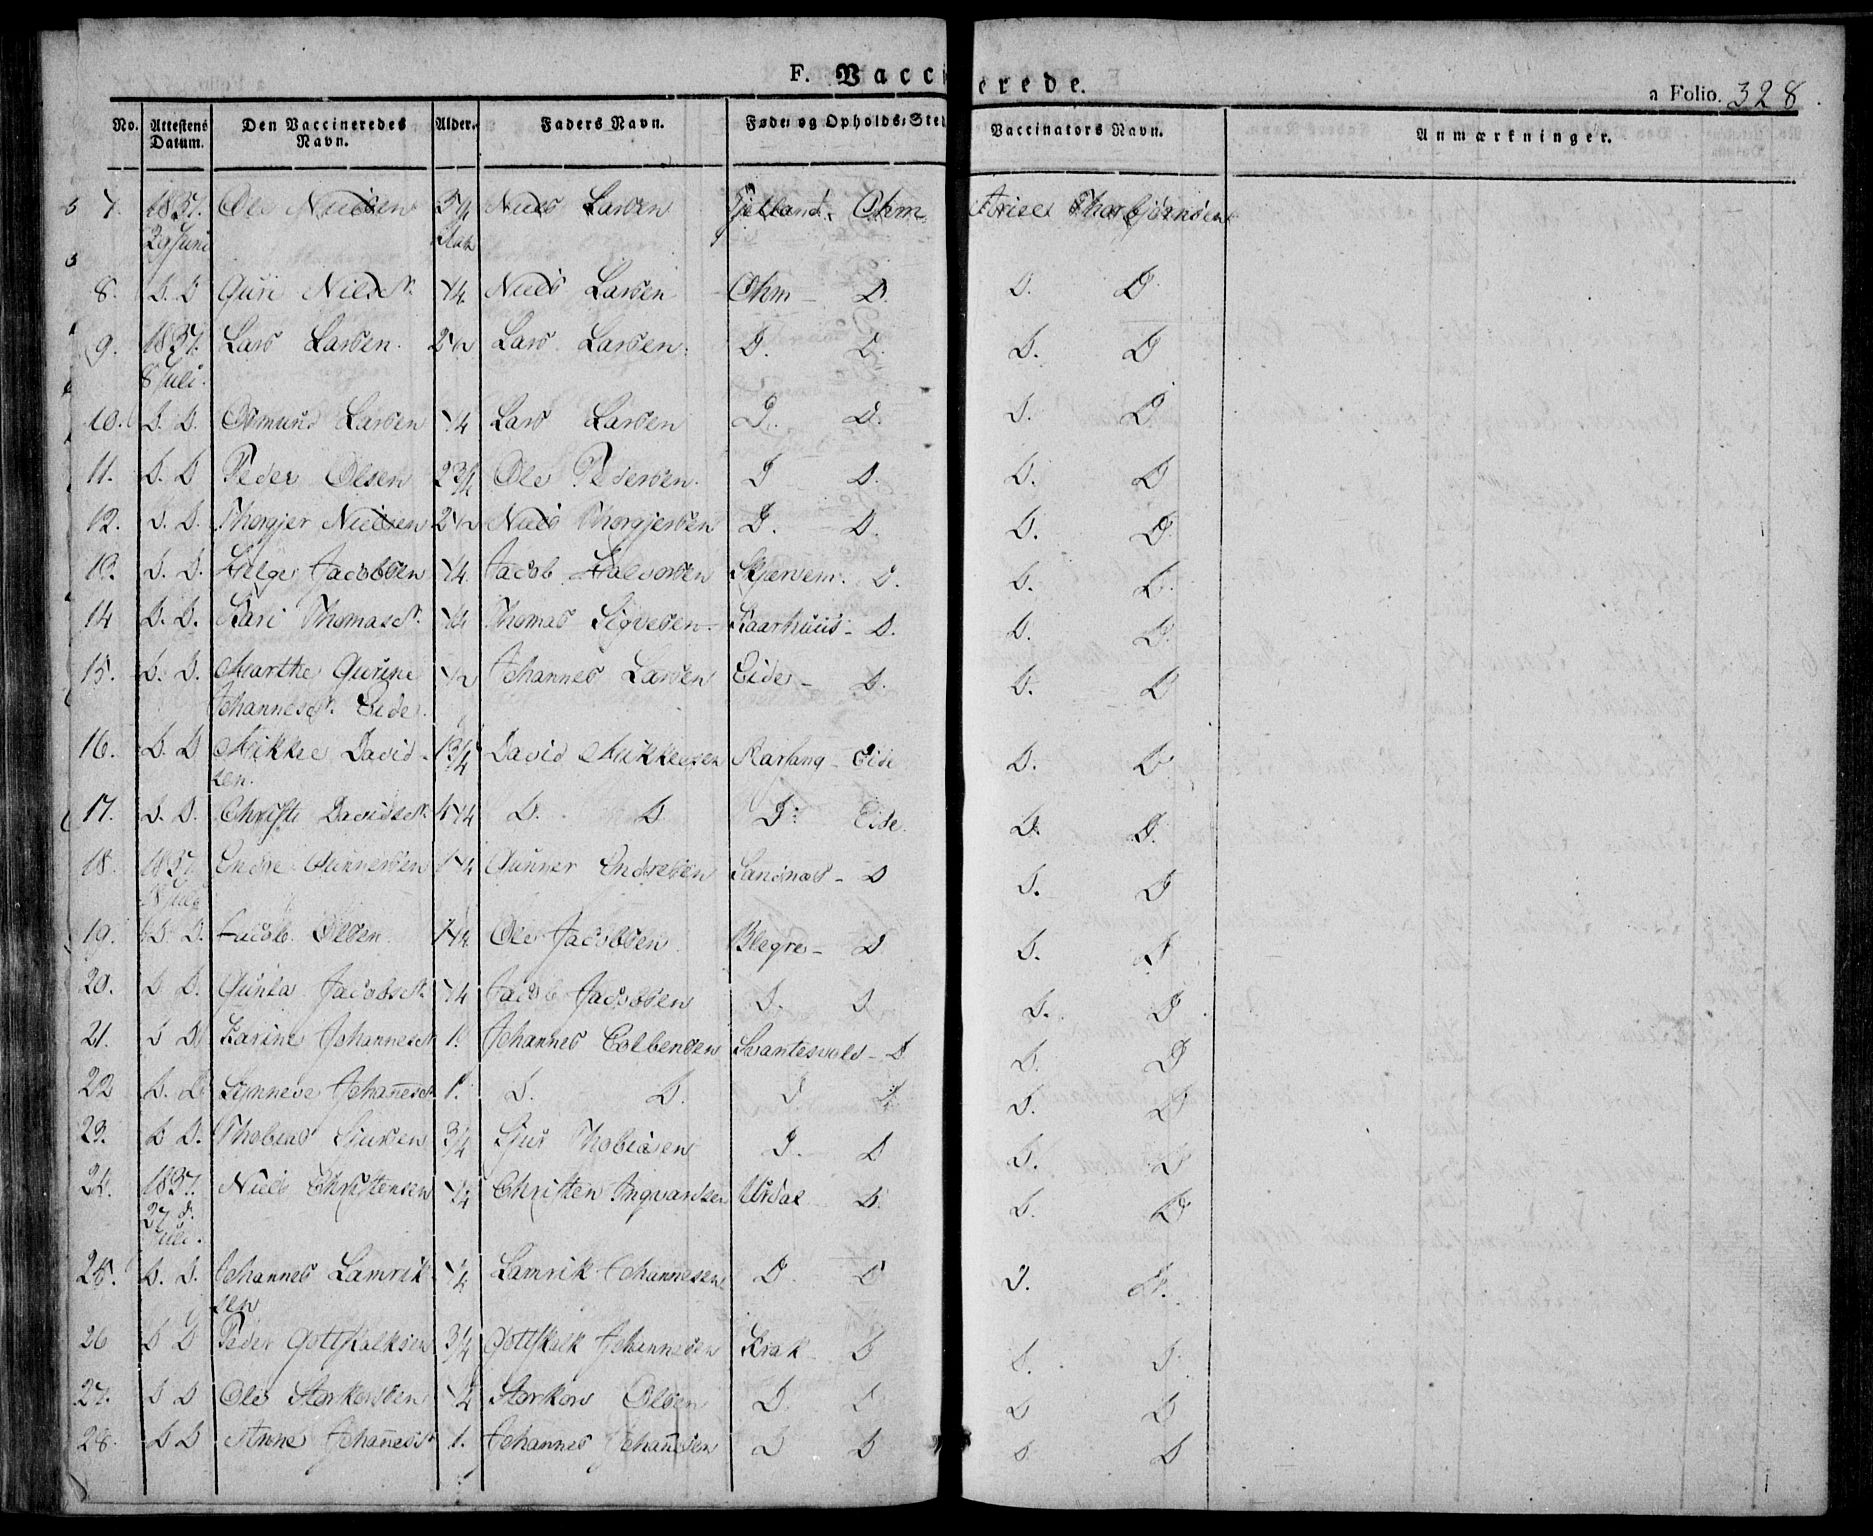 F. Vaccinerede.
a Folio. 328.
No. Attestens Datum. Den Vaccineredes Navn. Alder. Faders Navn. Føde- og Opholds-Sted Vaccinators Navn. Anmærkninger.
7. 1837. Ole Nielsen Niels Larsen Gjelland - Ohm Thorbjørnsen
29 Juni
8. D. D Guri Nilsdr. 1/4 Niels Larsen Ohm - D. D. D
9. 1837. Lars Larsen. 2 1/2 Lars Larsen. D. D. D. D
8 Juli.
10. D. D. Osmund Larsen 1/4 Lars Larsen D. D. D. D
11. D. D Peder Olsen 2 3/4 Ole Pedersen. D D. D. D
12. D. D. Thorgier Nielsen 2 1/2 Niels Thorgiersen D. D. D. D
13. D. D. Helge Jacobsen 1/4 Jacob Halvorsen D. D. D.
14 D. D. Kari Thomasdr. 1/4 Thomas Sigvesen - Kaarhuus - D. D. D.
15. D. D. Marthe Gurine 1/2 Johannes Larsen Eide - D. D. D
Johannesdr. Eide.
16. D. D Mikkel David- 13/4 David Mikkelsen Eide D. D.
sen.
17. D. D. Christi Davidsdr. D. D. D. Eide. D. D.
18. 1837 Endre Gunnersen 1 1/4 Gunner Endresen Sandnæs - D D. D
19. D D. Jacob Olsen Ole Jacobsen. Blegre - D D. D
20. D D. Gunla Jacobsdr. 1/4 Jacob Jacobsen D. D D. D.
21. D D Karine Johannesdr 1. Johannes Colbensen - D D. D
22 D. D Synneve Johannesdr 1. D. D. D D. D. D
23. D D. Thobias Siursen 3/4 Siur Thobiasen D. D D. D
24. 1837. Niels Christensen 1/4 Christen Ingvardsen Urdal D. D. D
27 d.
Juli.
25. D. D. Johannes Lamrik- 1/4 Lamrik Johannesen D. D D. D.
sen
26 D D Peder Gottskalksen 3/4 Gottskalk Johannesen Krak - D D. D.
27. D D Ole Storkorsen 1/4 Storkors Olsen D. D D D
28. D D Anne Johannesdr. 1. Johannes Johannesen D D D D